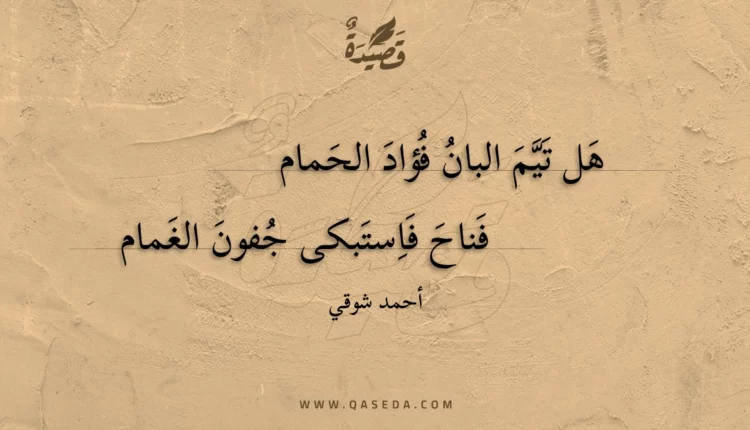 قَصِيْدَةٌ
هَل تَيَّمَ البانُ فُؤادَ الحَمام
فَناحَ فَاِستَبكى جُفونَ الغَمام
أحمد شوقي
WWW.QASEDA.COM